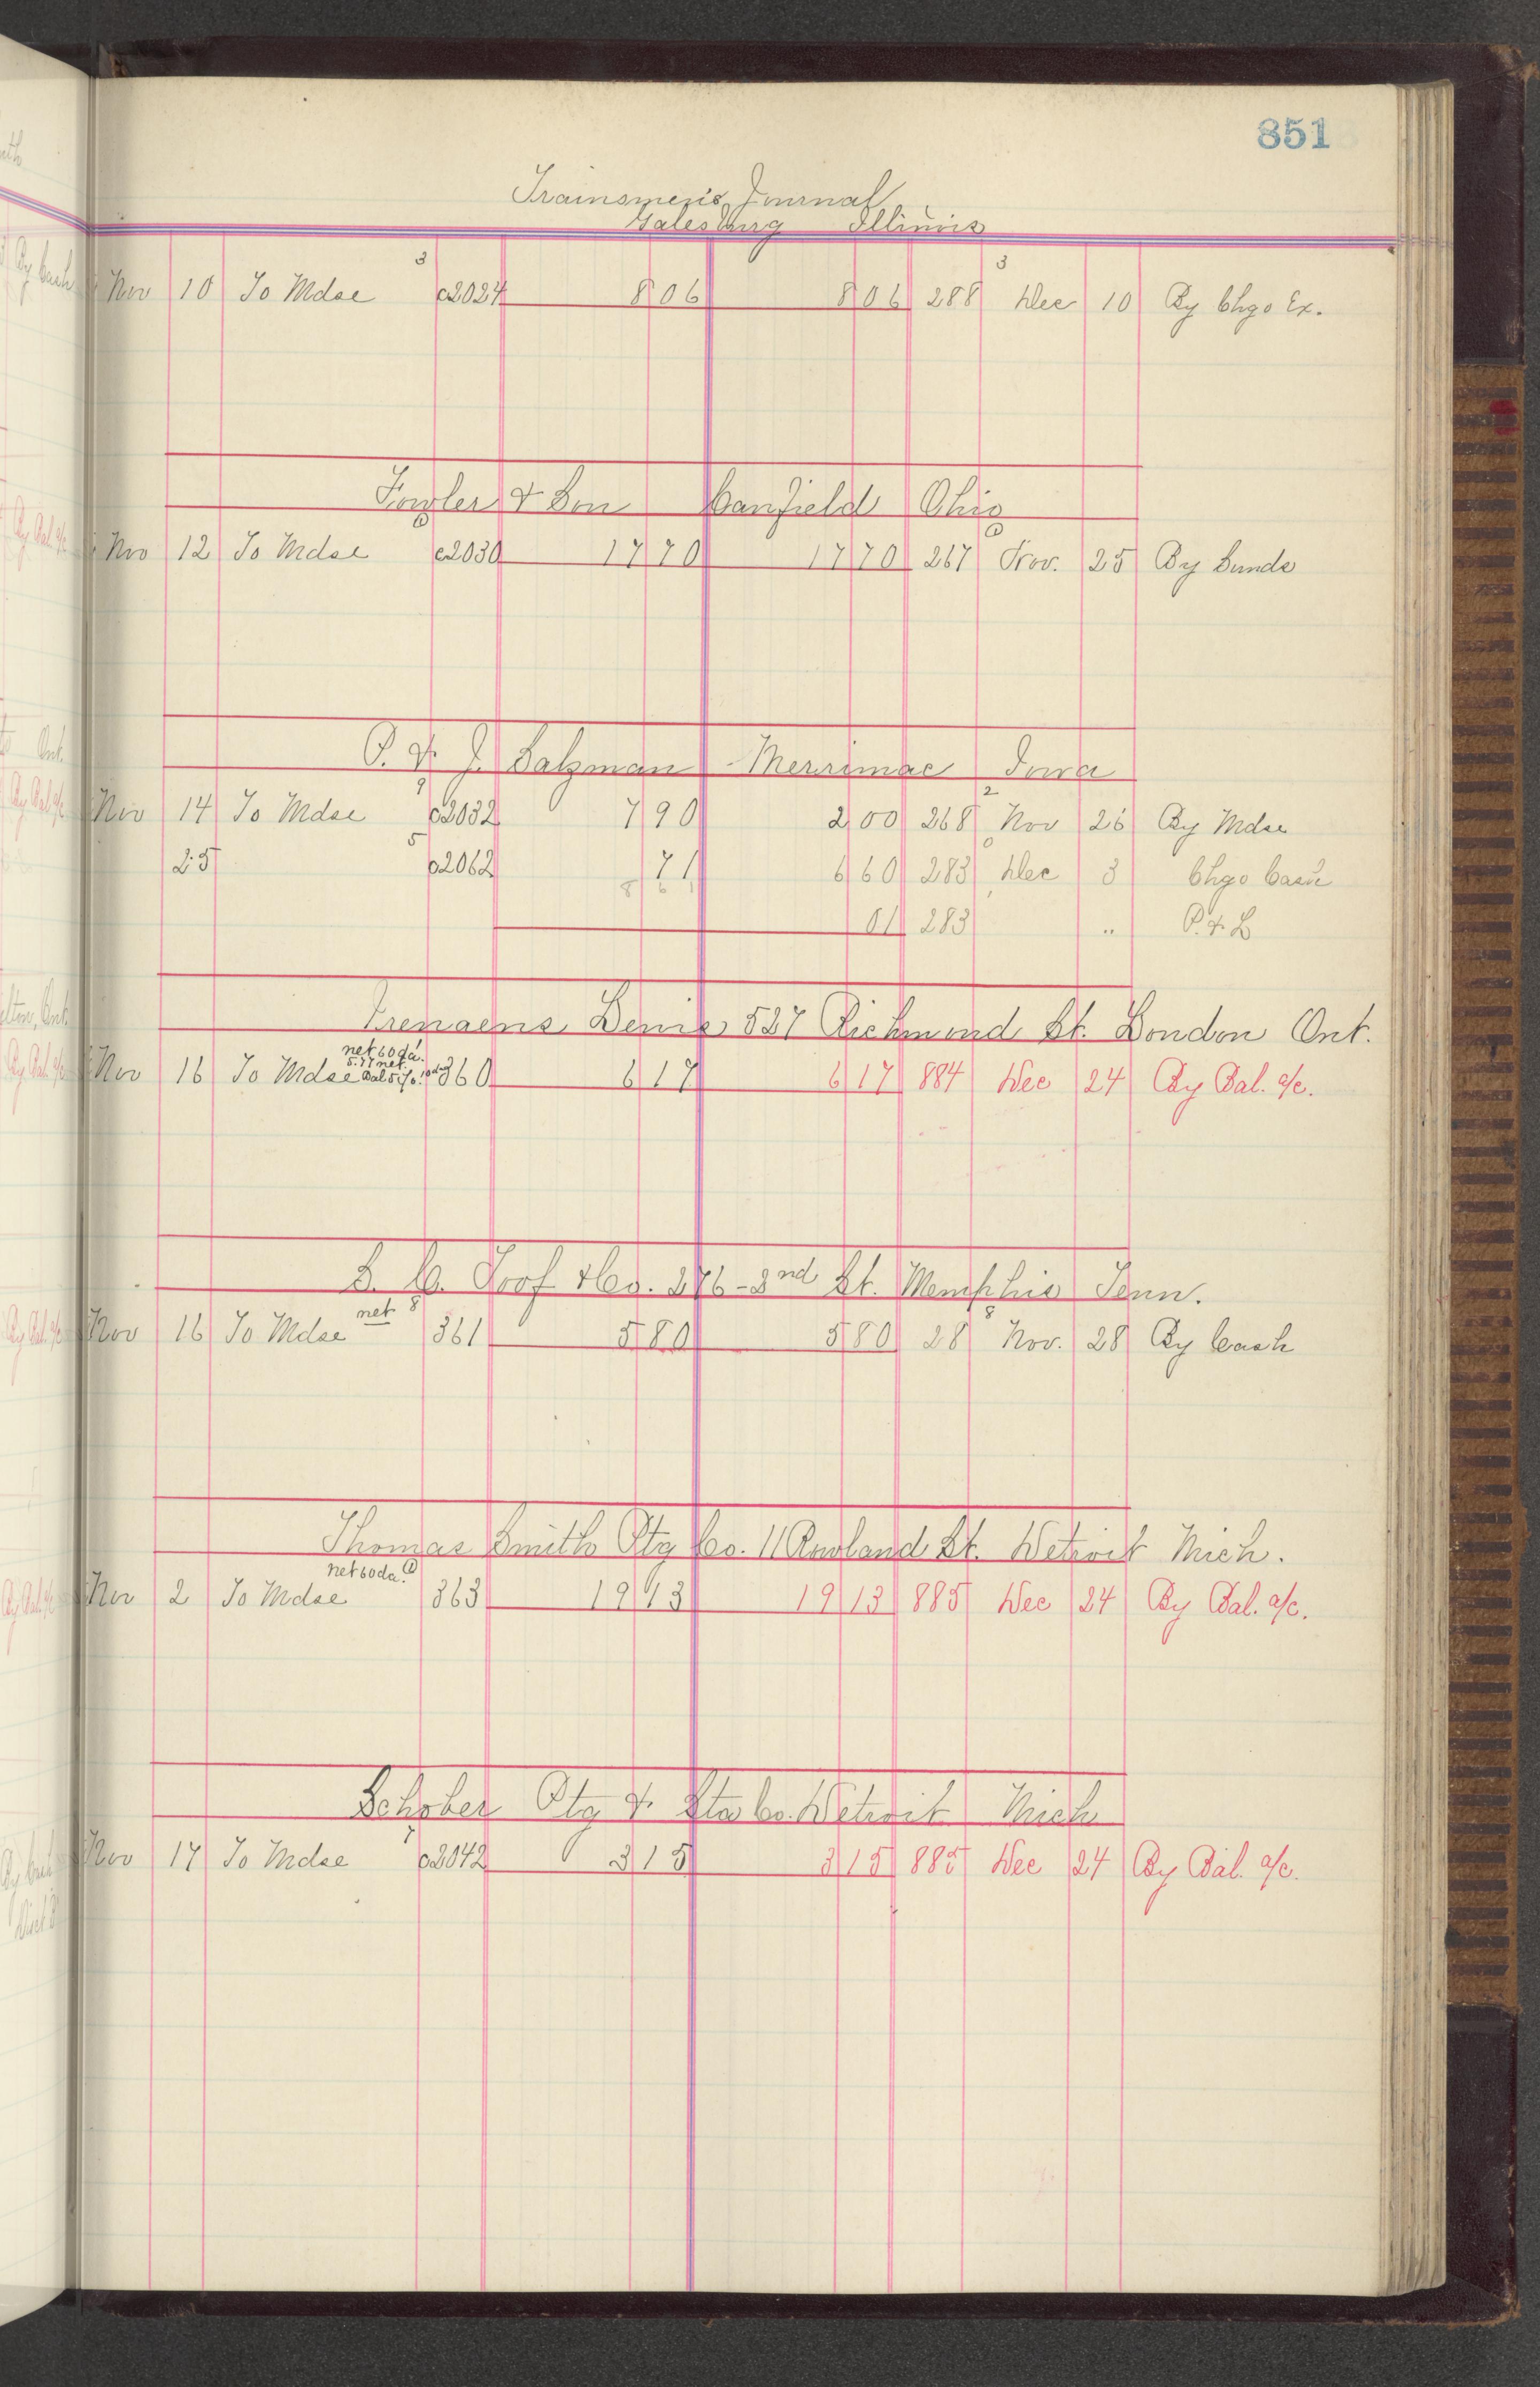 851
Trainsmen's Journal
Galesburg Illinois
3 3
Nov 10 To Mdse c2024 8 06 8 06 288 Dec 10 By Chgo Ex.
Fowler & Son Canfield Ohio
Nov 12 To Mdse c2030 17 70 17 70 267 Nov. 25 By Sunds
P. & J. Salzman Merrimac Iowa
9 2
Nov 14 To Mdse c2032 7 90 2 00 268 Nov 26 By Mdse
5
25 c2062 71 6 60 283 Dec 3 Chgo Cash
8 61
01 283 " P. & L
Irenaeus Denis 527 Richmond St. London Ont.
net 60 da.
5.77 net.
Nov 16 To Mdse 360 6 17 6 17 884 Dec 24 By Bal. a/c.
S. C. Toof & Co. 276-2nd St. Memphis Tenn.
net 8 8
Nov 16 To Mdse 361 5 80 5 80 28 Nov. 28 By Cash
Thomas Smith Ptg Co. 11 Rowland St. Detroit Mich.
net 60 da.
Nov 2 To Mdse 363 19 13 19 13 885 Dec 24 By Bal. a/c.
Schober Ptg & Sta Co. Detroit Mich
7
Nov 17 To Mdse c2042 3 15 3 15 885 Dec 24 By Bal. a/c.